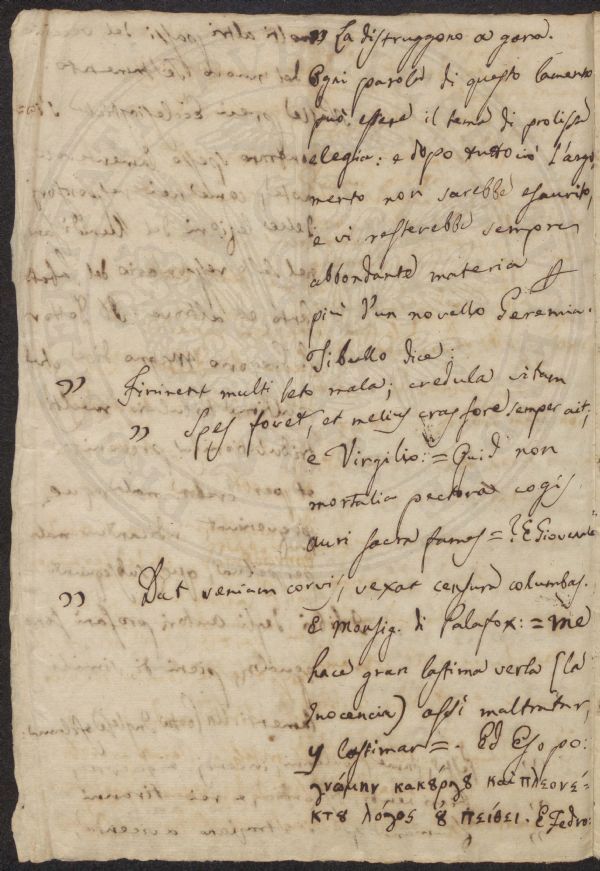 „ La distruggono a gara.
Ogni parola di questo lamento
può essere il tema di prolissa
elegia: e dopo tuttociò l'argo
mento non sarebbe esaurito,
e vi resterebbe sempre
abbondante materia
più d'un novello Geremia.
Tibullo dice:
„ Finirent multi leto mala; credula vitam
„ Spes fovet, et melius cras fore semper ait;
e Virgilio: = Quid non
mortalia pectora cogis
auri sacra fames = ? E Giovenale
„ Dat veniam corvis, vexat censura columbas.
E Monsig. di Palafox: = Me
hace gran lastima verla (la
Inocencia) assi maltratar,
y lastimar =. Ed Esopo:
γνώμην κακούργου και πλεονέ-
κτου λόγος ου πείθει. E Fedro: